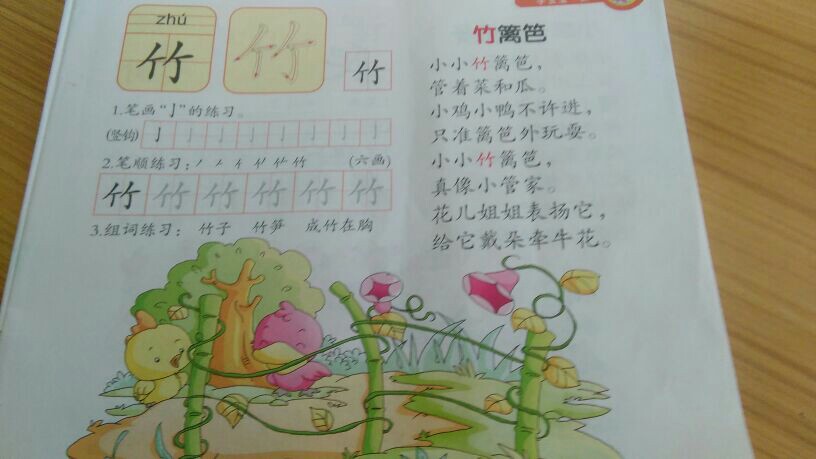 zhú
竹
竹
竹
1.笔画“亅”的练习。
(竖钩) 亅 亅 亅 亅 亅 亅 亅 亅
2.笔顺练习：丿 𠂉 ⺊ 竹 (六画)
竹 竹 竹 竹 竹 竹
3.组词练习： 竹子 竹笋 成竹在胸
竹篱笆
小小竹篱笆，
管着菜和瓜。
小鸡小鸭不许进，
只准篱笆外玩耍。
小小竹篱笆，
真像小管家。
花儿姐姐表扬它，
给它戴朵牵牛花。